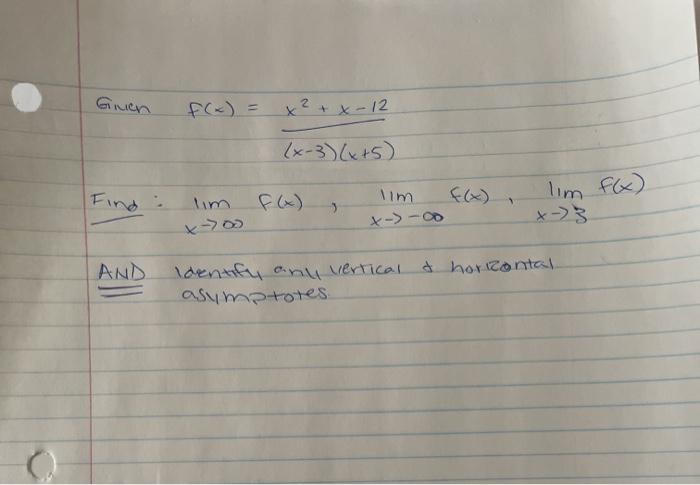 Given f(x) = x² + x - 12
(x-3)(x+5)
Find : lim f(x) , lim f(x) , lim f(x)
x→∞ x→-∞ x→3
AND Identify any vertical & horizontal
asymptotes.